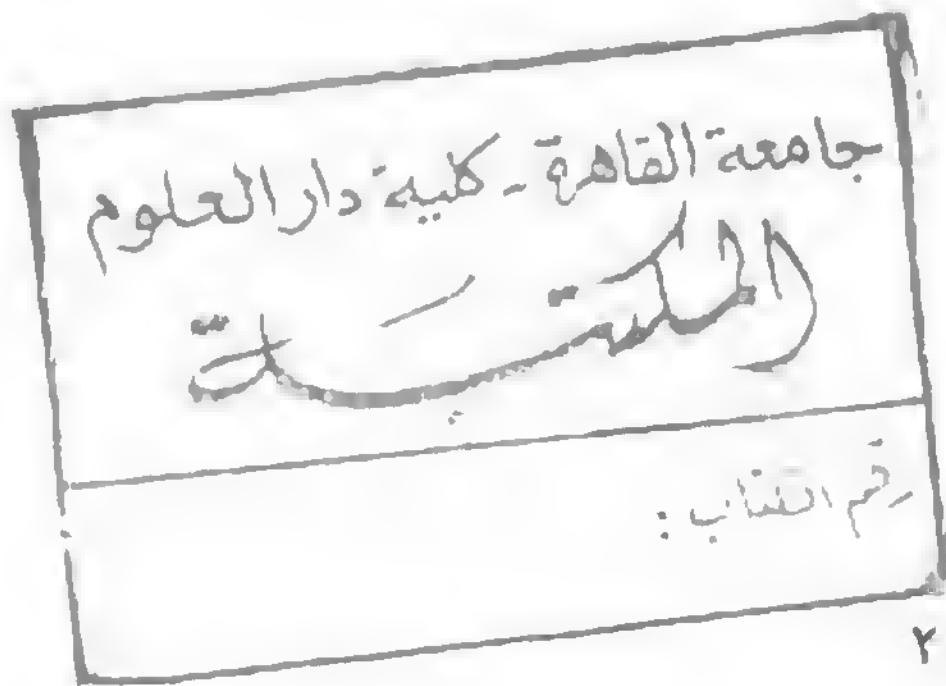 جامعة القاهرة - كلية دار العلوم
المكتبة
رقم الكتاب :
٢